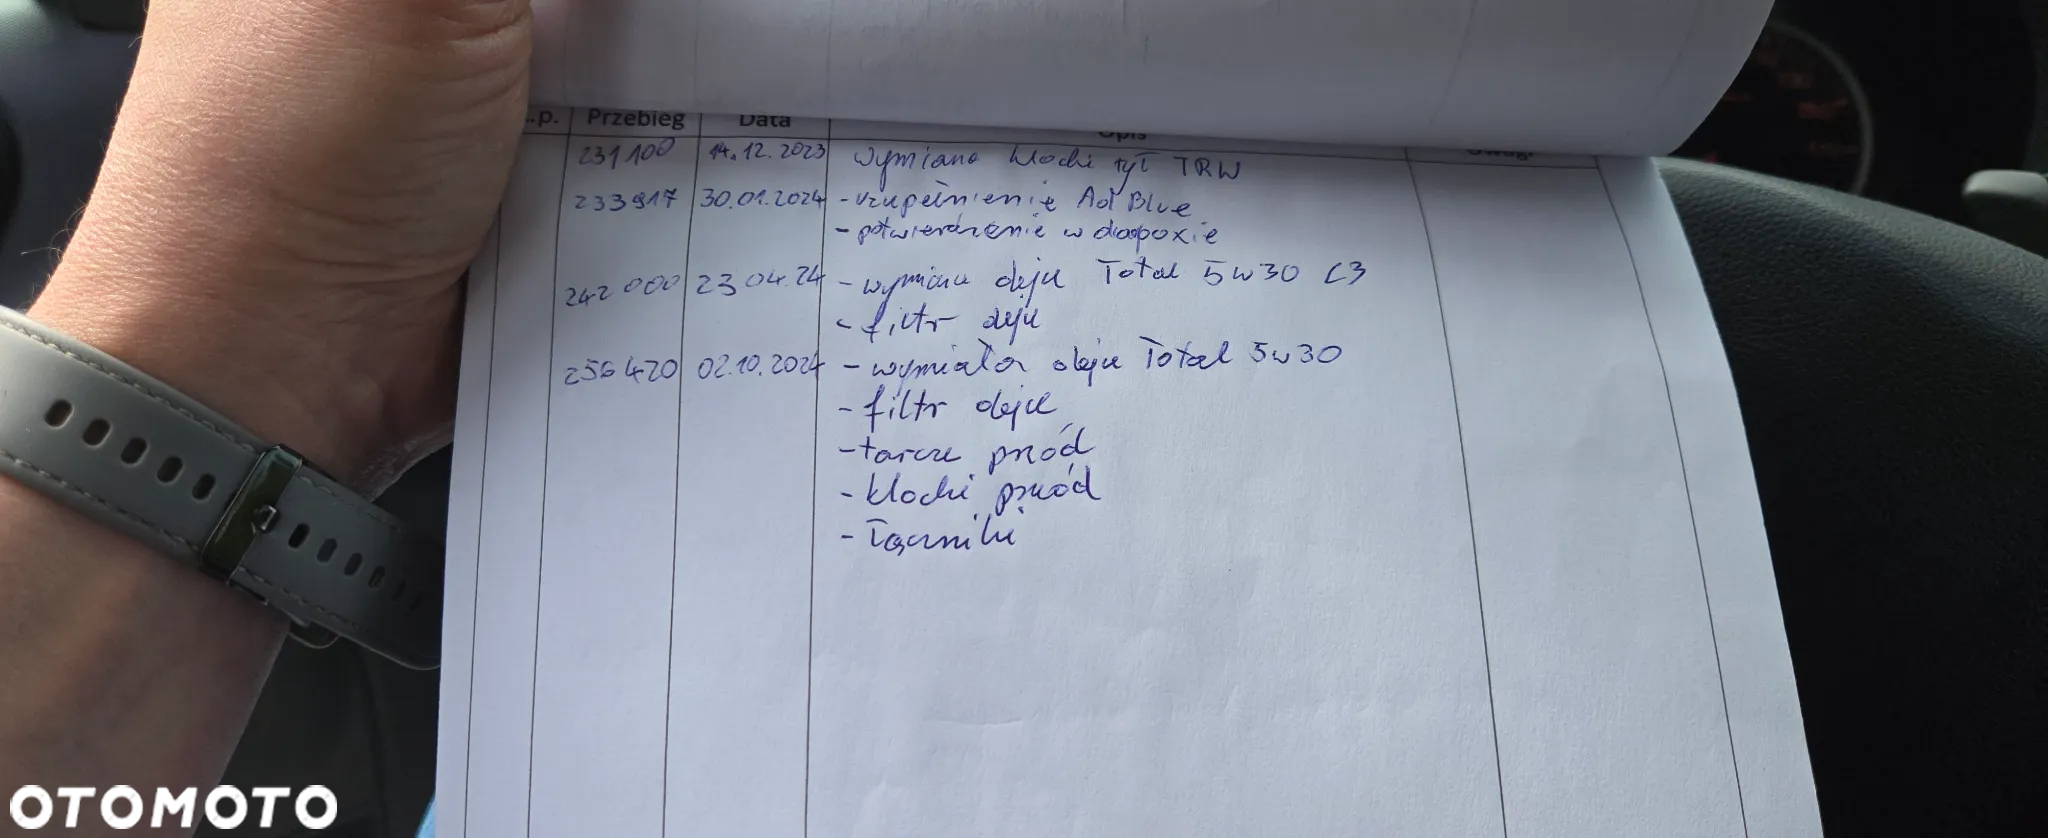 .p. Przebieg Data Opis Uwagi
231100 14.12.2023 wymiana klocki tył TRW
233917 30.01.2024 - uzupełnienie AdBlue
- potwierdzenie w diagboxie
242 000 23 04.24 - wymiana oleju Total 5w30 C3
- filtr oleju
256420 02.10.2024 - wymiana oleju Total 5w30
- filtr oleju
- tarcze przód
- klocki przód
- łączniki
OTOMOTO